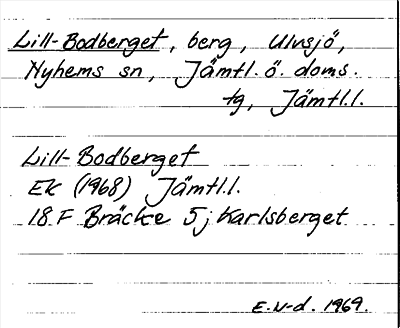 Lill-Bodberget, berg, Ulvsjö,
Nyhems sn, Jämtl. ö. doms.
tg, Jämtl.l.
Lill-Bodberget
EK (1968) Jämtl.l.
18 F Bräcke 5j Karlsberget
E.N-d. 1969.